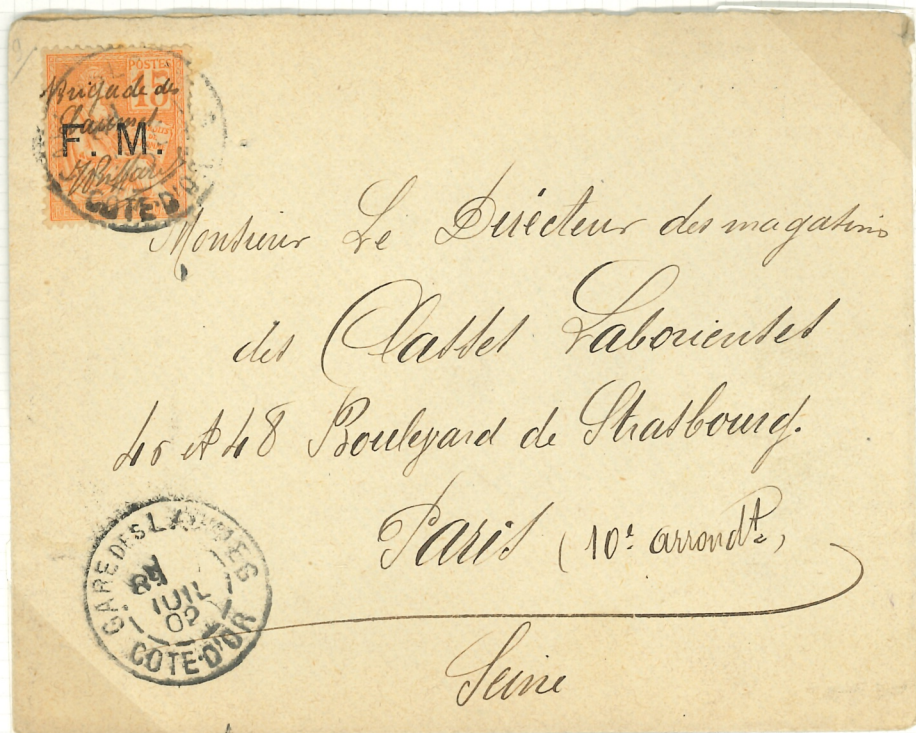 POSTES
15
Brigade de
F. M.
COTE-D'OR
Monsieur Le Directeur des magasins
des Classes Laborieuses
46 et 48 Boulevard de Strasbourg.
Paris (10e. arrondt.)
Seine
GARE DES LAUMES
JUIL
02
COTE-D'OR